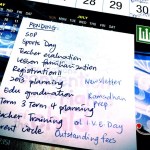 JULY
PENDING:
SOP
Sports Day
Teacher evaluation
Lesson familiarization
Registration!!
2013 planning Newsletter
Edu graduation Ramadhan
Term 3 Term 4 planning Prep.
Teacher Training of I.V.E. Day
Parent Circle Outstanding fees